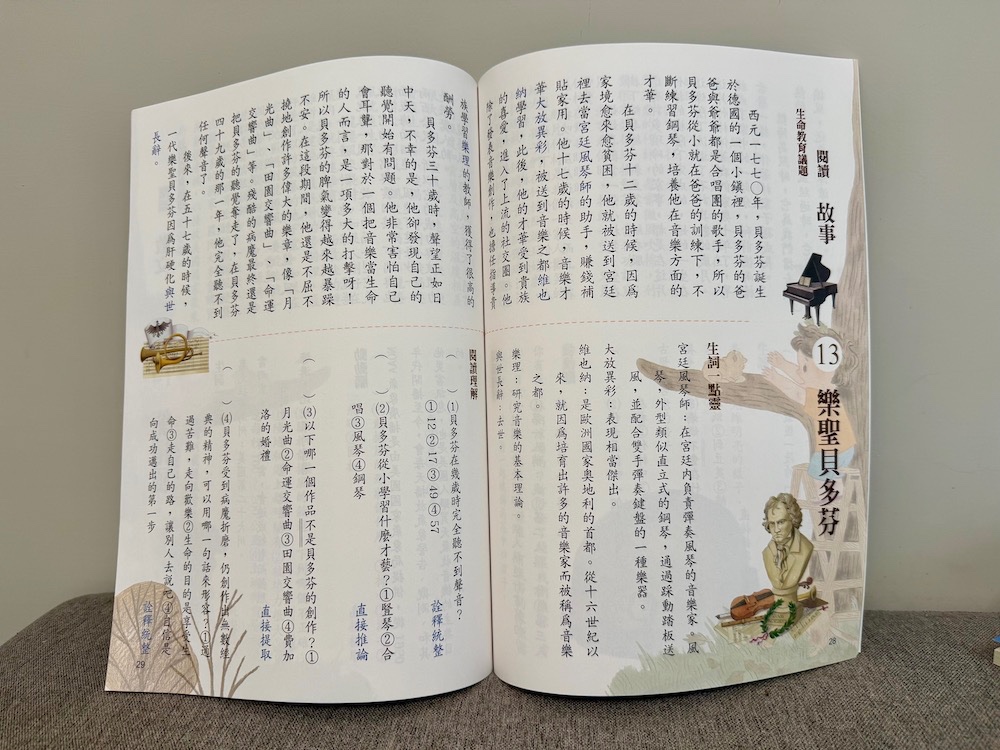 閱讀 故事 13 樂聖貝多芬
生命教育議題
西元一七七〇年，貝多芬誕生
於德國的一個小鎮裡，貝多芬的爸
爸與爺爺都是合唱團的歌手，所以
貝多芬從小就在爸爸的訓練下，不
斷練習鋼琴，培養他在音樂方面的
才華。
在貝多芬十二歲的時候，因為
家境愈來愈貧困，他就被送到宮廷
裡去當宮廷風琴師的助手，賺錢補
貼家用。他十七歲的時候，音樂才
華大放異彩，被送到音樂之都維也
納學習，此後，他的才華受到貴族
的喜愛，進入了上流的社交圈。他
除了發表音樂創作，也擔任指導貴
生詞一點靈
宮廷風琴師：在宮廷內負責彈奏風琴的音樂家。風
琴，外型類似直立式的鋼琴，通過踩動踏板送
風，並配合雙手彈奏鍵盤的一種樂器。
大放異彩：表現相當傑出。
維也納：是歐洲國家奧地利的首都。從十六世紀以
來，就因為培育出許多的音樂家而被稱為音樂
之都。
樂理：研究音樂的基本理論。
與世長辭：去世。
28
族學習樂理的教師，獲得了很高的
酬勞。
貝多芬三十歲時，聲望正如日
中天，不幸的是，他卻發現自己的
聽覺開始有問題。他非常害怕自己
會耳聾，那對於一個把音樂當生命
的人而言，是一項多大的打擊呀！
所以貝多芬的脾氣變得越來越暴躁
不安。在這段期間，他還是不屈不
撓地創作許多偉大的樂章，像「月
光曲」、「田園交響曲」、「命運
交響曲」等。殘酷的病魔最終還是
把貝多芬的聽覺奪走了，在貝多芬
四十九歲的那一年，他完全聽不到
任何聲音了。
後來，在五十七歲的時候，
一代樂聖貝多芬因為肝硬化與世
長辭。
閱讀理解
（　）⑴貝多芬在幾歲時完全聽不到聲音？
①12②17③49④57 詮釋統整
（　）⑵貝多芬從小學習什麼才藝？①豎琴②合
唱③風琴④鋼琴 直接推論
（　）⑶以下哪一個作品不是貝多芬的創作？①
月光曲②命運交響曲③田園交響曲④費加
洛的婚禮 直接提取
（　）⑷貝多芬受到病魔折磨，仍創作出無數經
典的精神，可以用哪一句話來形容？①通
過苦難，走向歡樂②生命的目的是享受生
命③走自己的路，讓別人去說吧④自信是
向成功邁出的第一步 詮釋統整
29